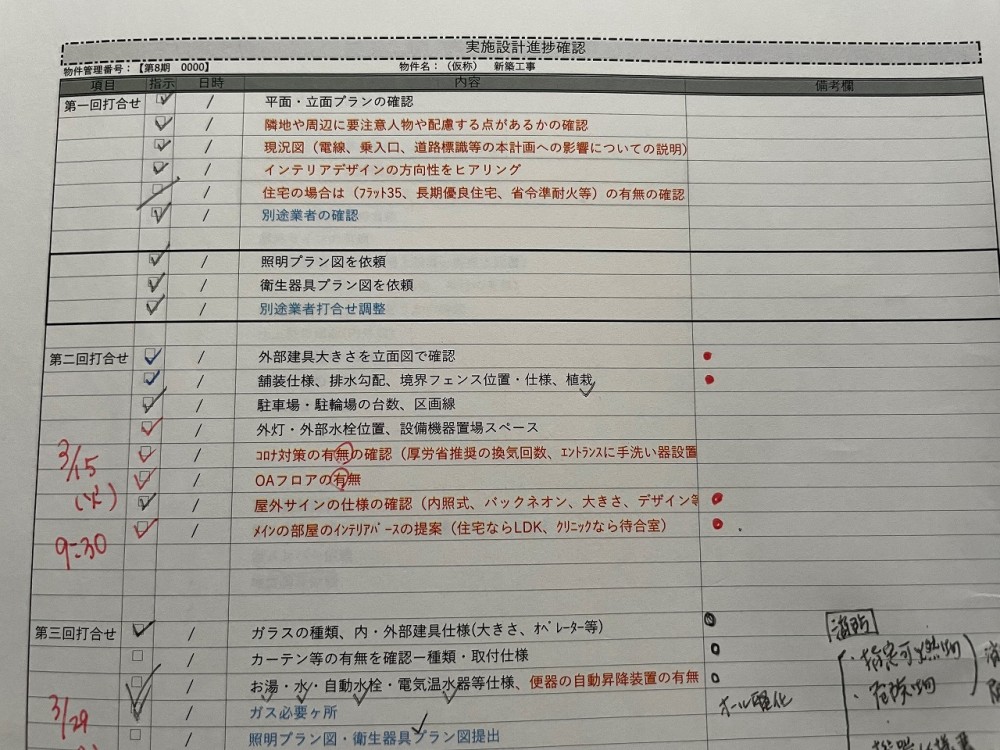 実施設計進捗確認
物件管理番号：【第8期　0000】　物件名：（仮称）　新築工事
項目　指示　日時　内容　備考欄
第一回打合せ　/　平面・立面プランの確認
/　隣地や周辺に要注意人物や配慮する点があるかの確認
/　現況図（電線、乗入口、道路標識等の本計画への影響についての説明）
/　インテリアデザインの方向性をヒアリング
/　住宅の場合は（ﾌﾗｯﾄ35、長期優良住宅、省令準耐火等）の有無の確認
/　別途業者の確認
/　照明プラン図を依頼
/　衛生器具プラン図を依頼
/　別途業者打合せ調整
第二回打合せ　/　外部建具大きさを立面図で確認
/　舗装仕様、排水勾配、境界フェンス位置・仕様、植栽
/　駐車場・駐輪場の台数、区画線
/　外灯・外部水栓位置、設備機器置場スペース
3/15　/　ｺﾛﾅ対策の有無の確認（厚労省推奨の換気回数、ｴﾝﾄﾗﾝｽに手洗い器設置
/　OAフロアの有無
(火)　/　屋外サインの仕様の確認（内照式、バックネオン、大きさ、デザイン等
9:30　/　ﾒｲﾝの部屋のｲﾝﾃﾘｱﾊﾟｰｽの提案（住宅ならLDK、クリニックなら待合室）
第三回打合せ　/　ガラスの種類、内・外部建具仕様(大きさ、ｵﾍﾟﾚｰﾀｰ等)　消防
/　カーテン等の有無を確認ー種類・取付仕様　・指定可燃物
/　お湯・水・自動水栓・電気温水器等仕様、便器の自動昇降装置の有無　オール電化　・危険物
3/29　/　ガス必要ヶ所
/　照明プラン図・衛生器具プラン図提出